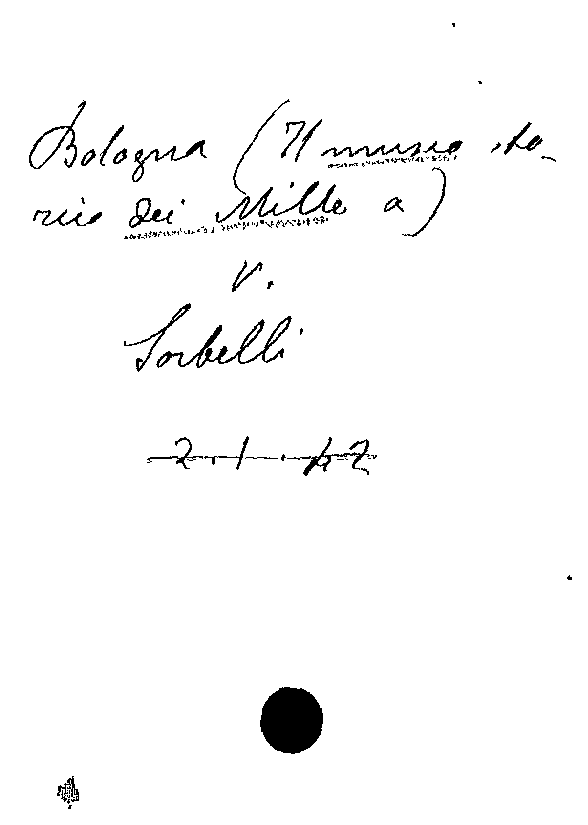 Bologna (Il museo sto-
rico dei Mille a)
v.
Sorbelli
2.1.42